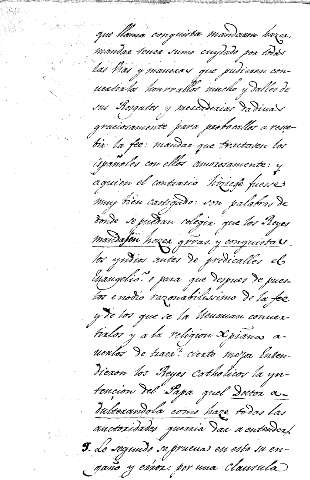 que llama conquista mandauan hazer
mandar tener sumo cuydado por todas
las vias y maneras que pudiesen con
uertirlos honrrallos mucho y dalles de
sus Resgates y mercaderias dadiuas
graciosamente para prouocallos a rece
bir la fee: mandar que tractasen los
españoles con ellos amorosamente: y
a quien el contrario hiziese fuesse
muy bien castigado: son palabras de
donde se puedan colegir que los Reyes
mandasen hazer gerras, y conquistas
los yndios antes de predicalles el
Euangelio, o para que despues de pues
los en odio razonabilissimo de la fee
y de los que se la lleuauan conuer
tirlos y a la religion Xpiana
cierto mejor enten
dieron los Reyes Catholicos la yn
tencion del Papa quel Doctor a
dulterandola como haze todas las
auctoridades querria dar a entender
3. Lo segundo se prueua en esto su en
gaño y error: por una clausula